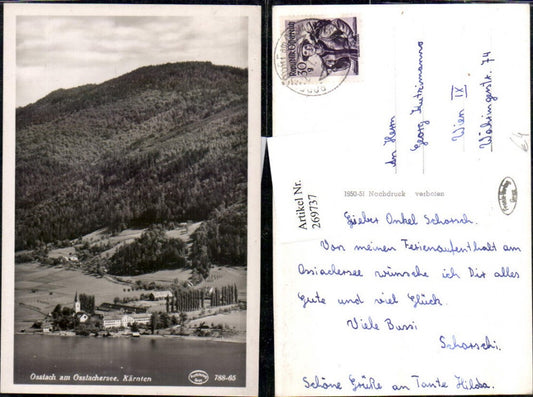 Ossiach am Ossiachersee, Kärnten
788-65
Republik Österreich
30 g
An Herrn
Georg
Wien IX
Währingerstr. 74
€4
1950-51 Nachdruck verboten
Artikel Nr.
269737
Lieber Onkel Schorsch.
Von meinen Ferienaufenthalt am
Ossiachersee wünsche ich Dir alles
Gute und viel Glück.
Viele Bussi
Schorschi.
Schöne Grüße an Tante Hilda.